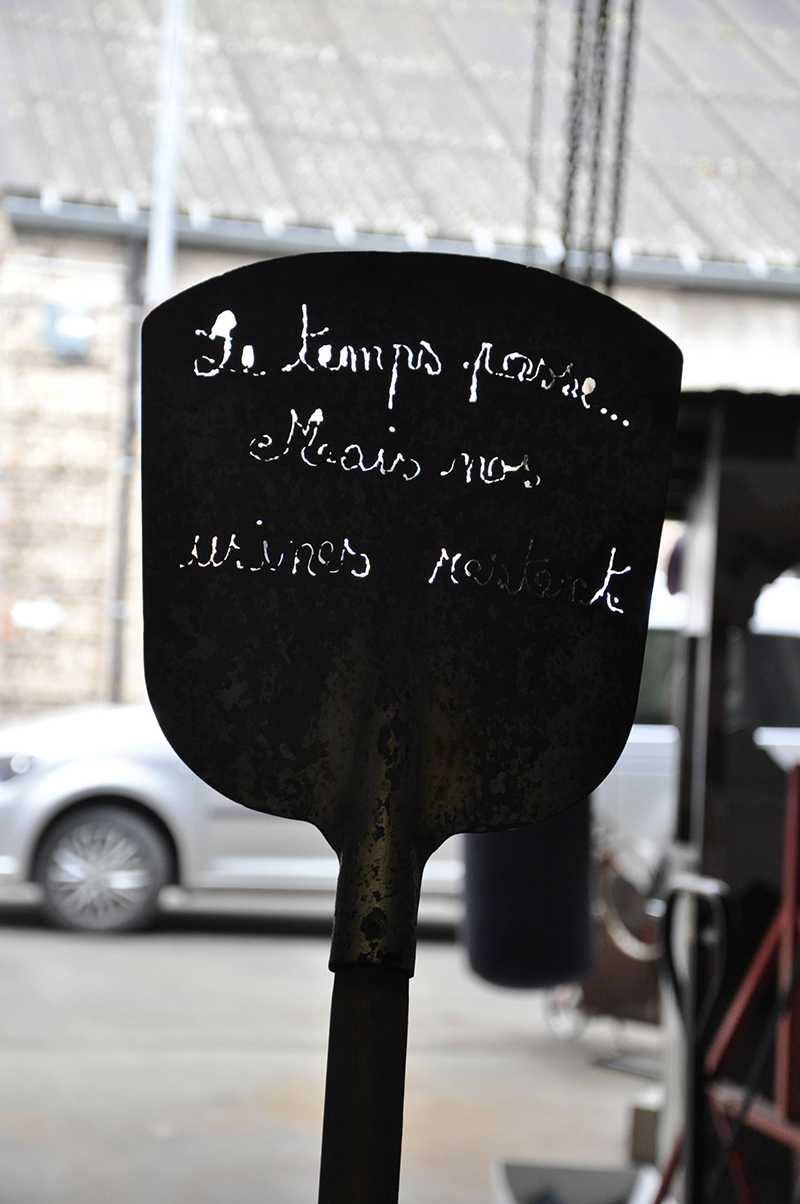 Le temps passe...
Mais nos
usines restent